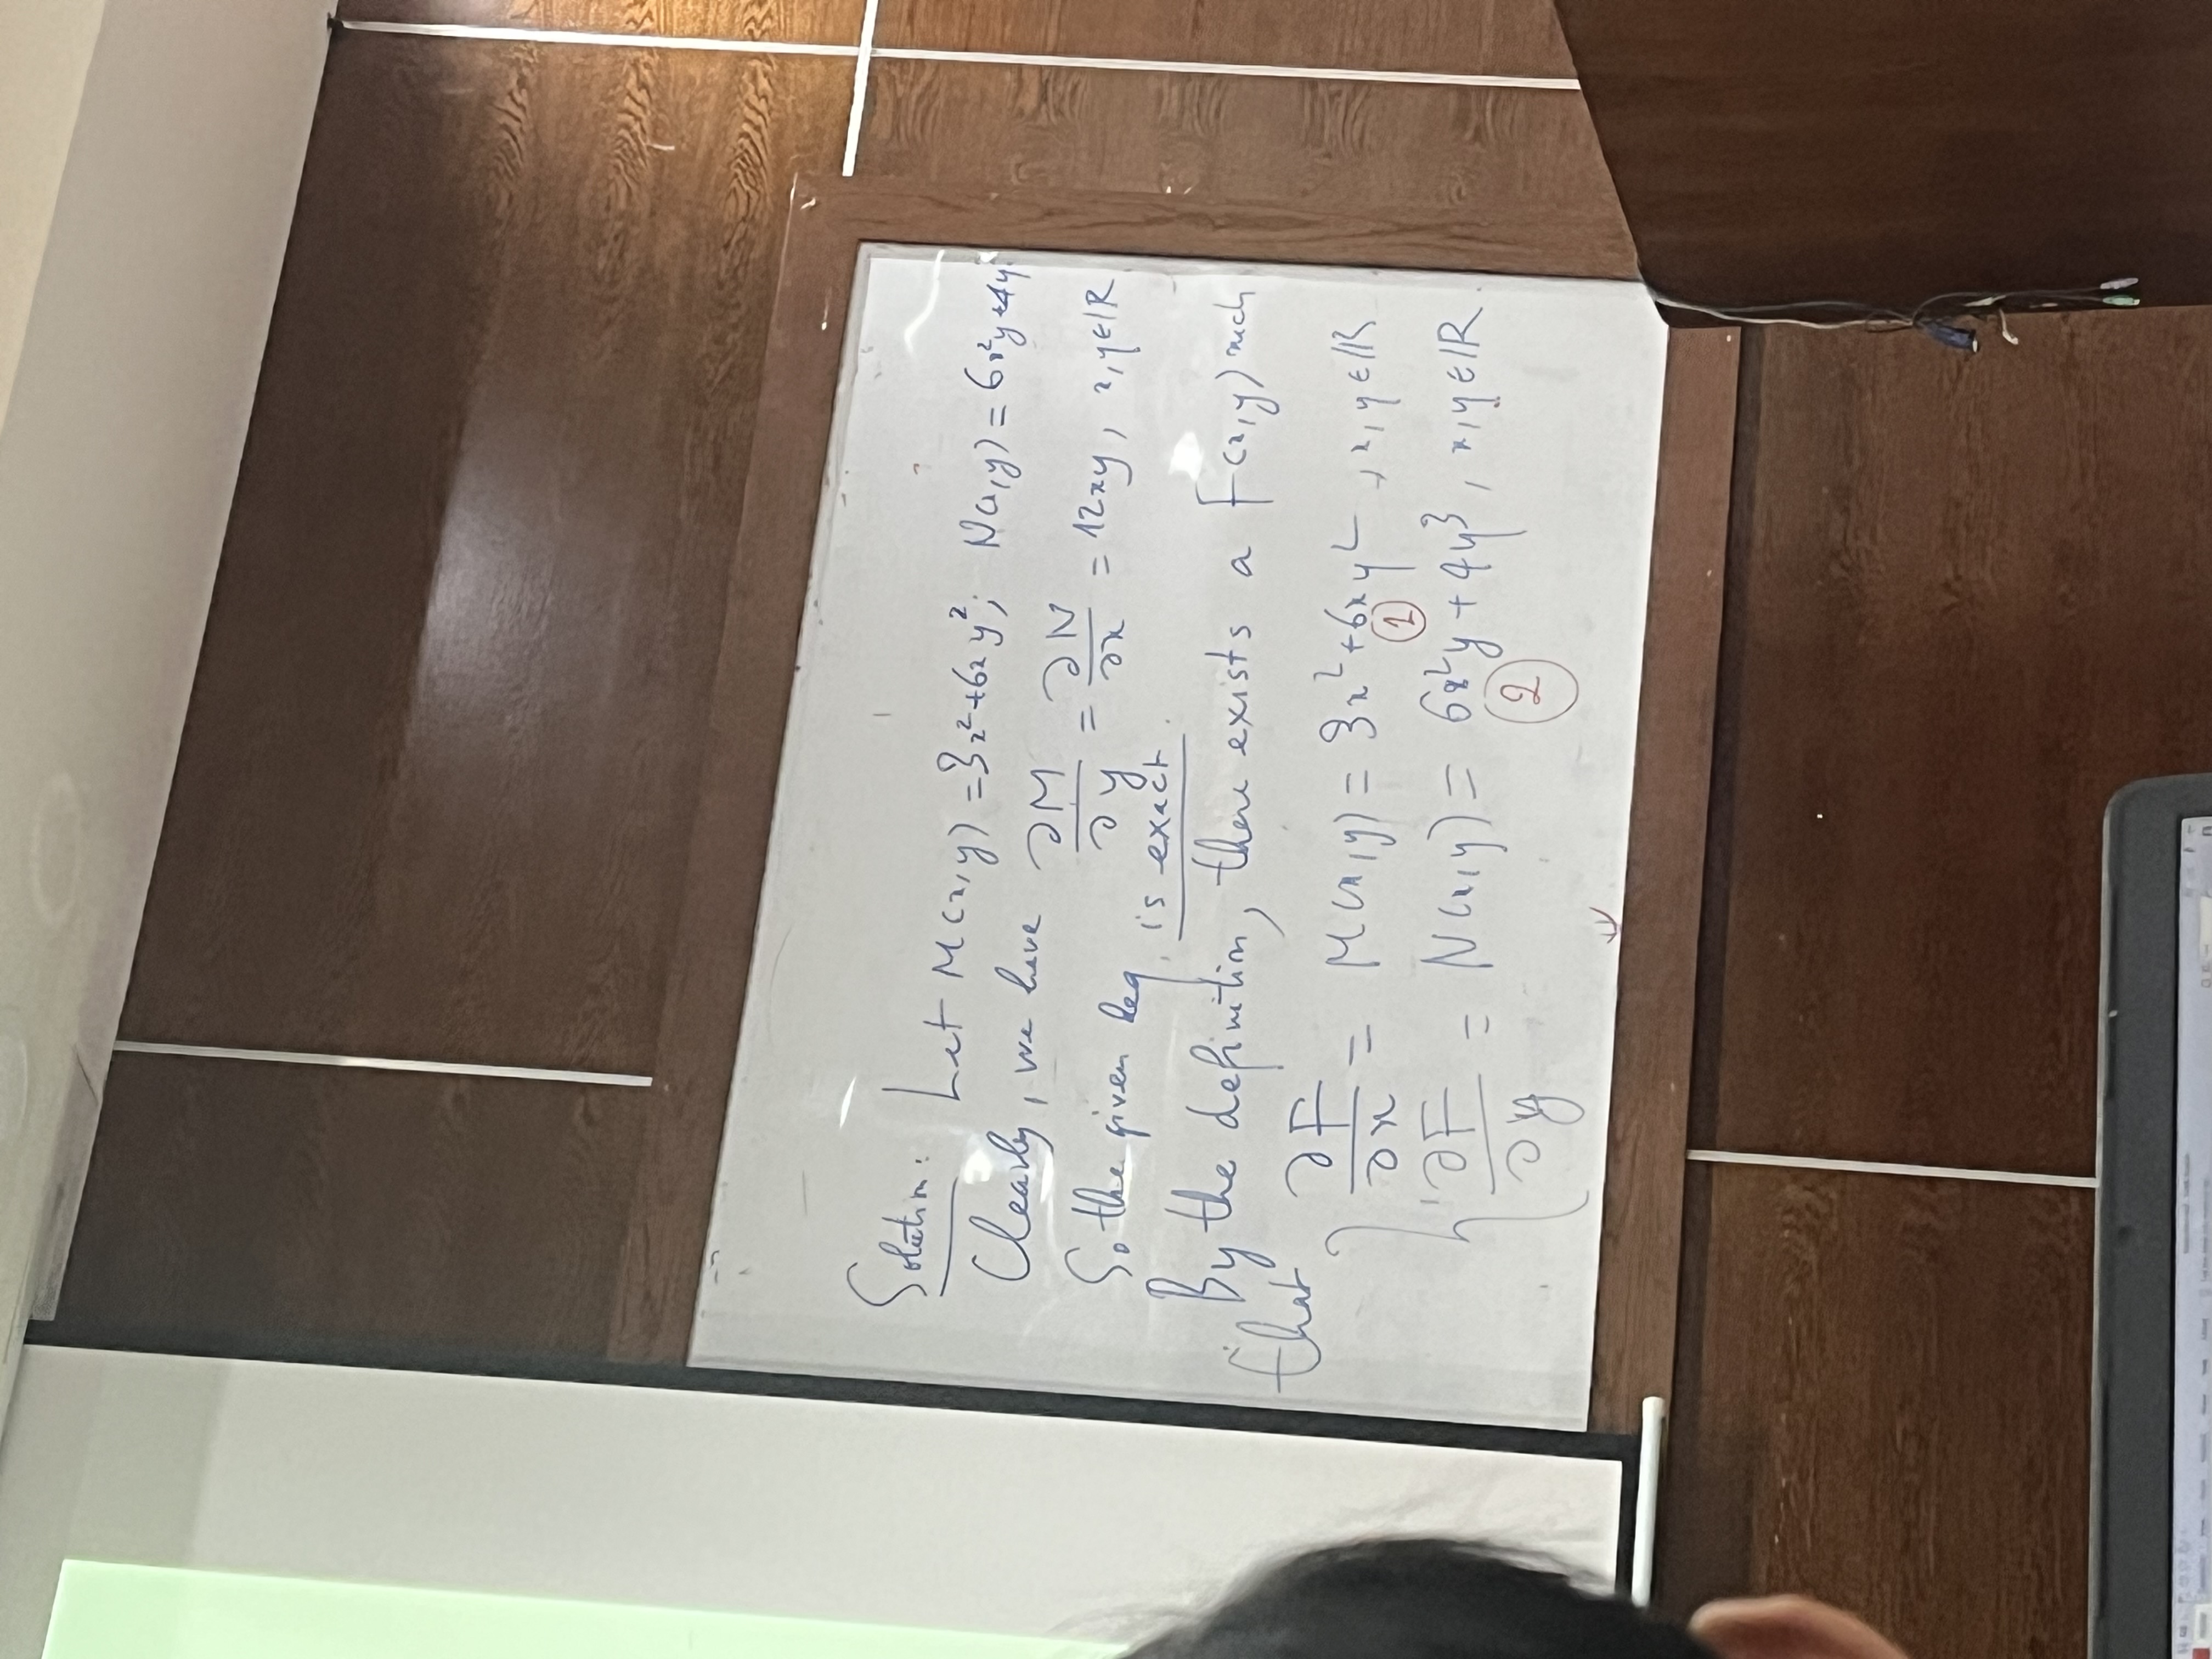 Solution: Let M(x,y) = 3x²+6xy²; N(x,y) = 6x²y+4y
Clearly, we have ∂M/∂y = ∂N/∂x = 12xy, x,y∈ℝ
So the given deq. is exact.
By the definition, there exists a F(x,y) such
that
∂F/∂x = M(x,y) = 3x²+6xy², x,y∈ℝ
①
∂F/∂y = N(x,y) = 6x²y+4y³, x,y∈ℝ.
②